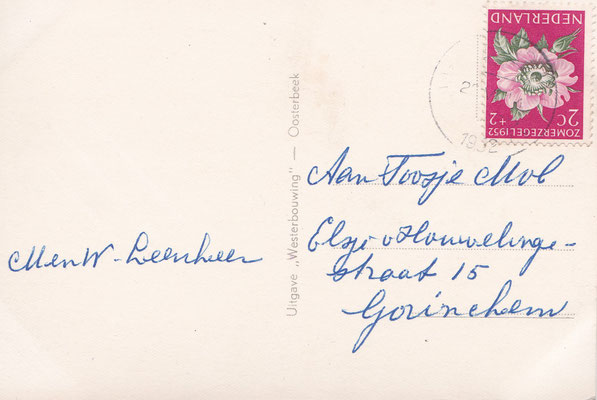 NEDERLAND
ZOMERZEGEL 1952
2c +2
1952
Uitgave „Westerbouwing" — Oosterbeek
Aan Toosje Mol
Elzje v Houwelinge-
straat 15
Gorinchem
M en W - Leenheer